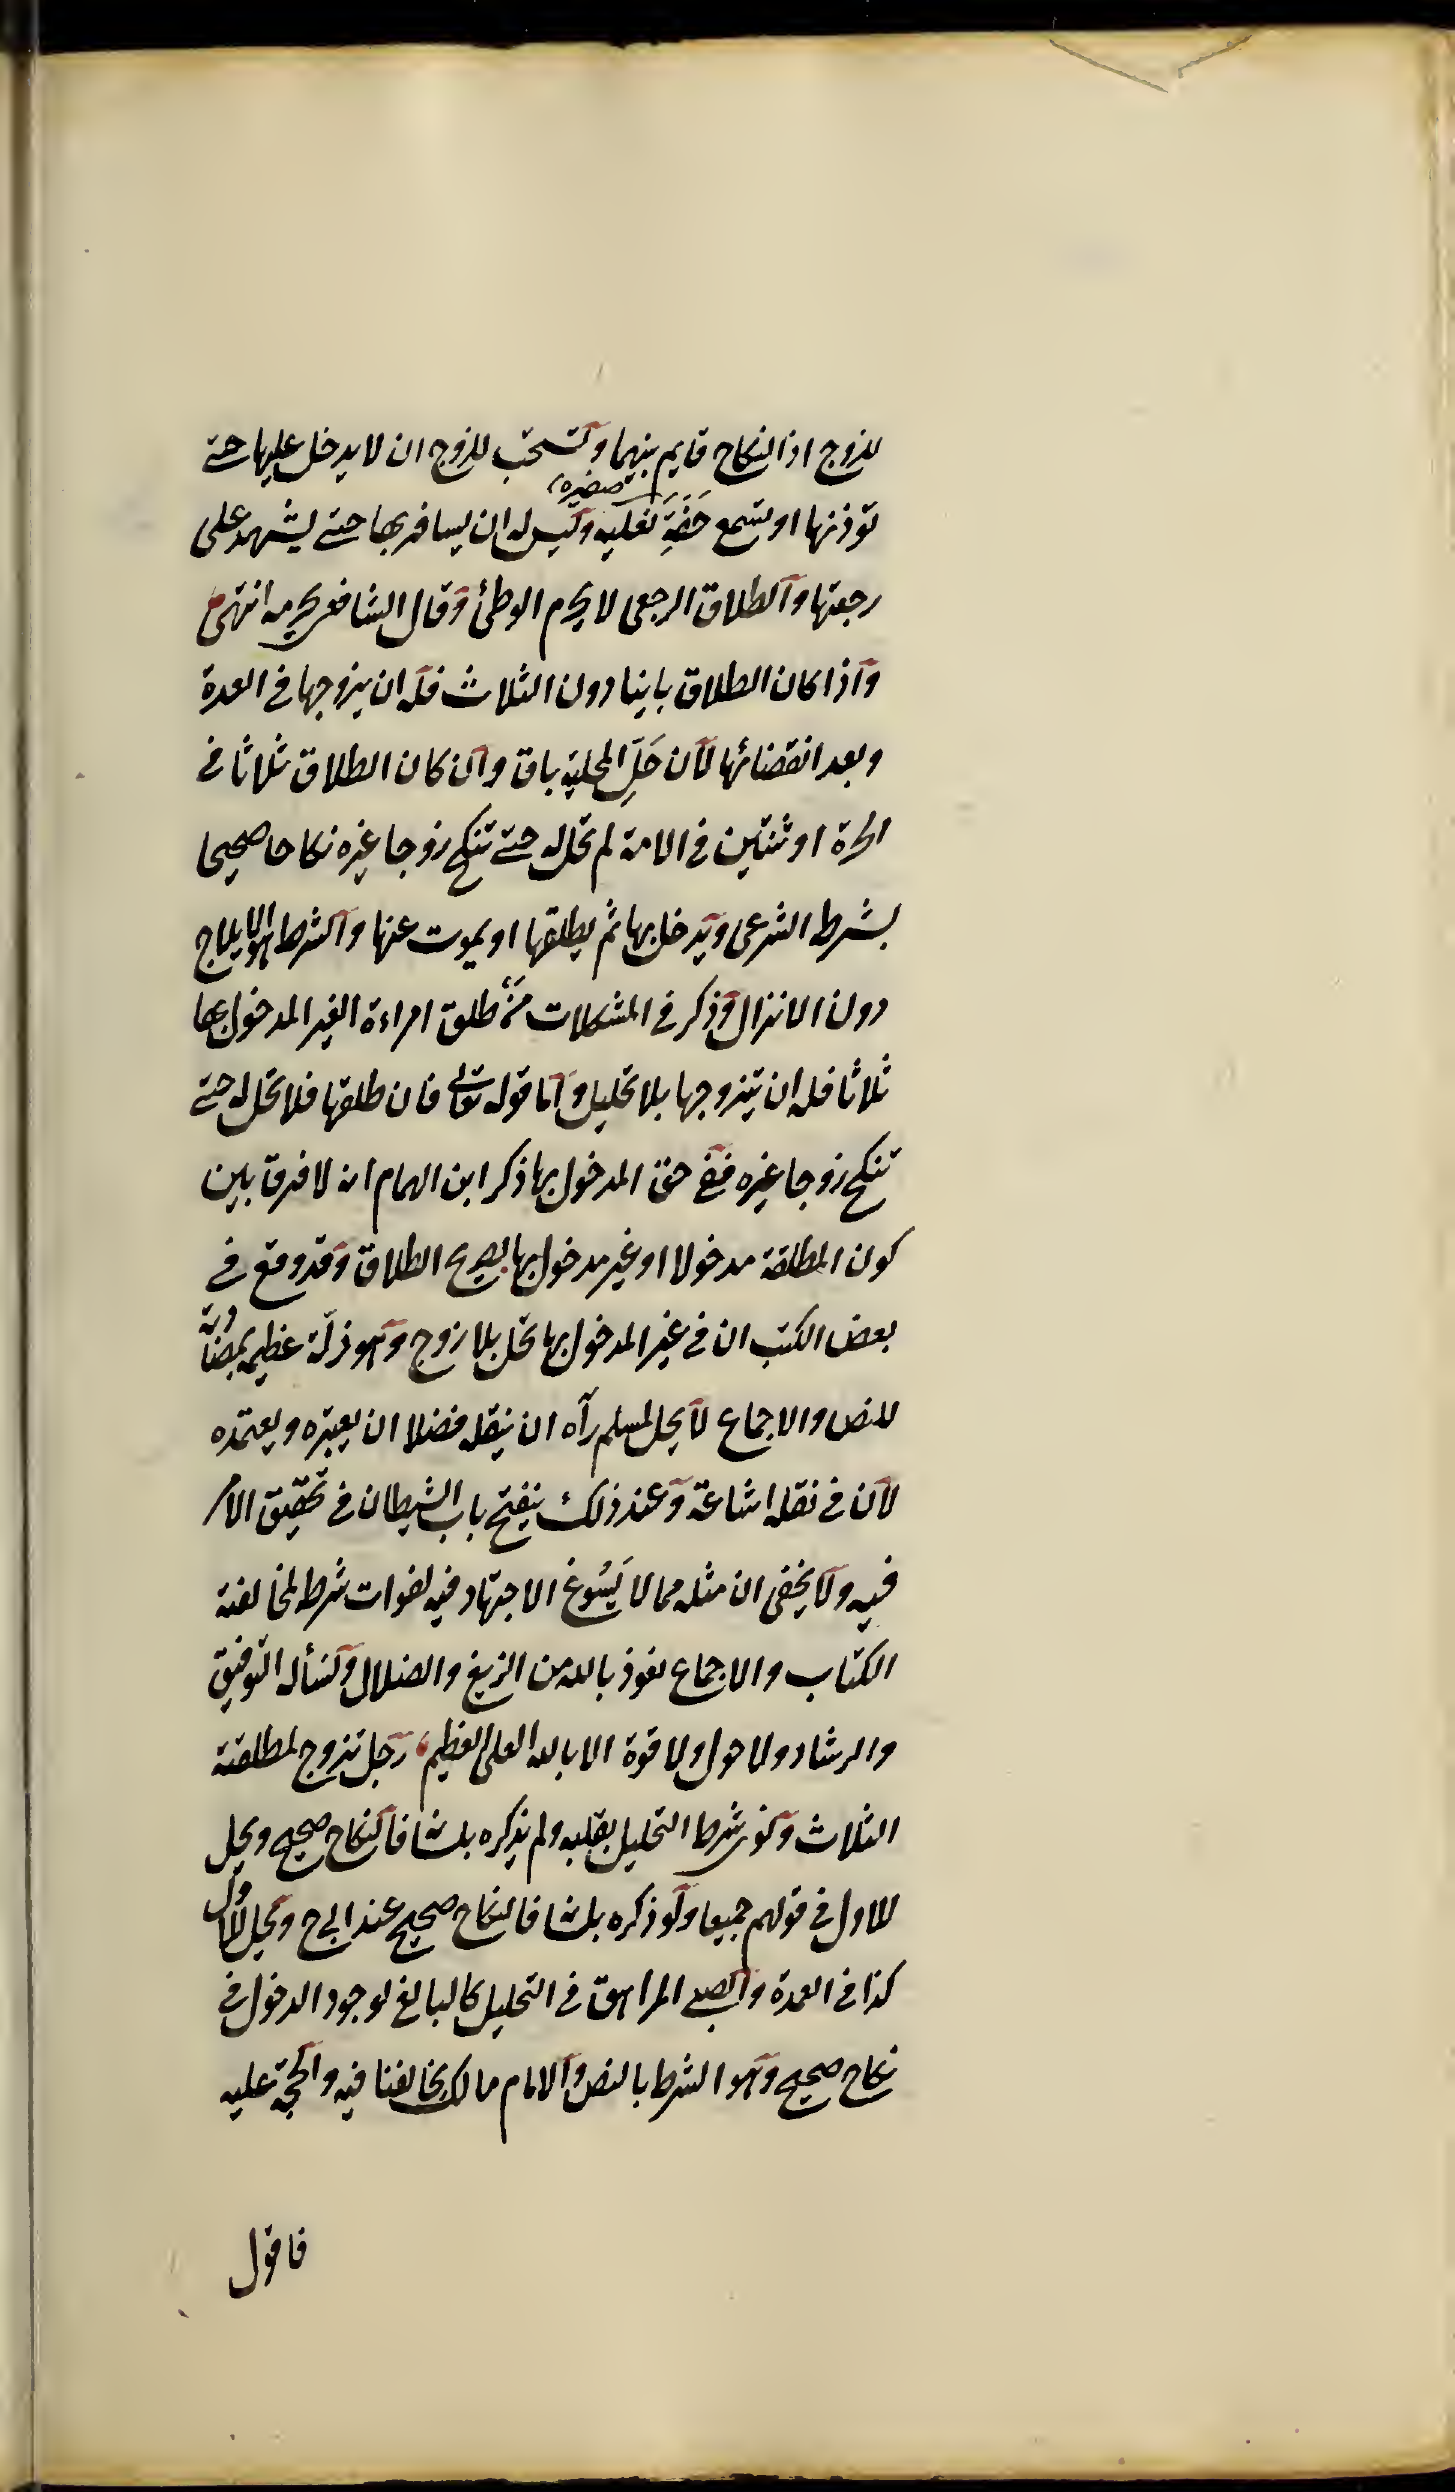 للزوج اذ النكاح قايم بينهما ويستحب للزوج ان لا يدخل عليها حتى
صغيرة
توذنها او تسمع خفة نعليه وليس له ان يسافر بها حتى يشهد على
رجعتها والطلاق الرجعى لا يحرم الوطئ وقال الشافعى يحرمه انتهى
واذا كان الطلاق باينا دون الثلاث فله ان يتزوجها فى العدة
وبعد انقضائها لان حل المحلية باق وان كان الطلاق ثلاثا فى
الحرة او ثنتين فى الامة لم تحل له حتى تنكح زوجا غيره نكاحا صحيحا
بشرط الشرعى ويدخل بها ثم يطلقها او يموت عنها والشرط هو الايلاج
دون الانزال وذكر فى المشكلات من طلق امراءة الغير المدخول بها
ثلاثا فله ان يتزوجها بلا تحليل واما قوله تعالى فان طلقها فلا تحل له حتى
تنكح زوجا غيره ففى حق المدخول بها ذكر ابن الهمام انه لا فرق بين
كون المطلقة مدخولا او غير مدخول بها بصريح الطلاق وقد وقع فى
بعض الكتب ان فى غير المدخول بها تحل بلا زوج وهو زلة عظيم بمصادمة
للنص والاجماع لا يحل لمسلم رآه ان ينقله فضلا ان يعبره ويعتمده
لان فى نقله اشاعة وعند ذلك ينفتح باب الشيطان فى تحقيق الامر
فيه ولا يخفى ان مثله مما لا يسوغ الاجتهاد فيه لفوات شرط لمخالفة
الكتاب والاجماع نعوذ بالله من الزيغ والضلال ونسأله التوفيق
والرشاد ولا حول ولا قوة الا بالله العلى العظيم رجل تزوج لمطلقة
الثلاث ونوى شرط التحليل بقلبه ولم يذكره بلسانه فالنكاح صحيح ويحل
للاول فى قولهم جميعا ولو ذكره بلسانه فالنكاح صحيح عند ابى ح ويحل للاول
كذا فى العمدة والصبى المراهق فى التحليل كالبالغ لوجود الدخول فى
نكاح صحيح وهو الشرط بالنص والامام مالك يخالفنا فيه والحجة عليه
فاقول